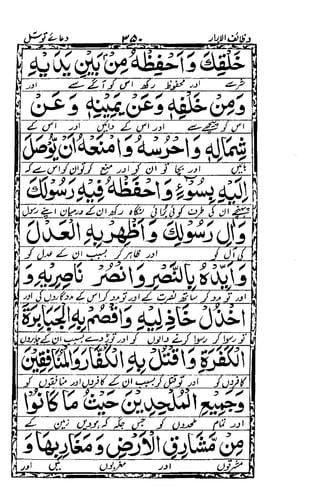 وظائف الابرار ۳۵۰ دعائے توسل
خَلْقِكَ وَاحْفَظْهُ مِنْ بَيْنِ يَدَيْهِ
شر سے اور محفوظ رکھ اس کو آگے سے اور
وَمِنْ خَلْفِهِ وَعَنْ يَمِيْنِهِ وَعَنْ
اس کو پیچھے سے اور اس کے دائیں اور اس کے
شِمَالِهِ وَاحْرُسْهُ وَامْنَعْهُ اَنْ يُوْصَلَ
بائیں اور بچا تو ان کو اور منع کر تو ان کو اس سے کہ
اِلَيْهِ بِسُوْءٍ وَاحْفَظْ فِيْهِ رَسُوْلَكَ
پہنچے ان کی طرف کوئی برائی نگاہ رکھ ان کے درمیان اپنے رسول
وَاٰلَ رَسُوْلِكَ وَاَظْهِرْ بِهِ الْعَدْلَ
کی آل کو اور ظاہر کر بسبب ان کے عدل کو
وَاَيِّدْهُ بِالنَّصْرِ وَانْصُرْ نَاصِرِيْهِ وَ
اور تو مدد کر ساتھ نصرت کے اور تو مدد کر اس کے مددگاروں کی اور
اخْذُلْ خَاذِلِيْهِ وَاقْصِمْ بِهِ الْجَبَابِرَةَ
تو رسوا کر رسوا کرنے والوں کو اور توڑ دے بسبب ان کے جابروں
الْكَفَرَةِ وَاقْتُلْ بِهِ الْكُفَّارَ وَالْمُنَافِقِيْنَ
کافروں کو اور تو قتل کر بسبب ان کے کافروں اور منافقوں کو
وَجَمِيْعَ الْمُلْحِدِيْنَ حَيْثُ مَا كَانُوْا
اور تمام ملحدوں کو جس جگہ کہ ہوویں زمین کے
مِنْ مَّشَارِقِ الْاَرْضِ وَمَغَارِبِهَا وَ
مشرقوں اور مغربوں میں اور